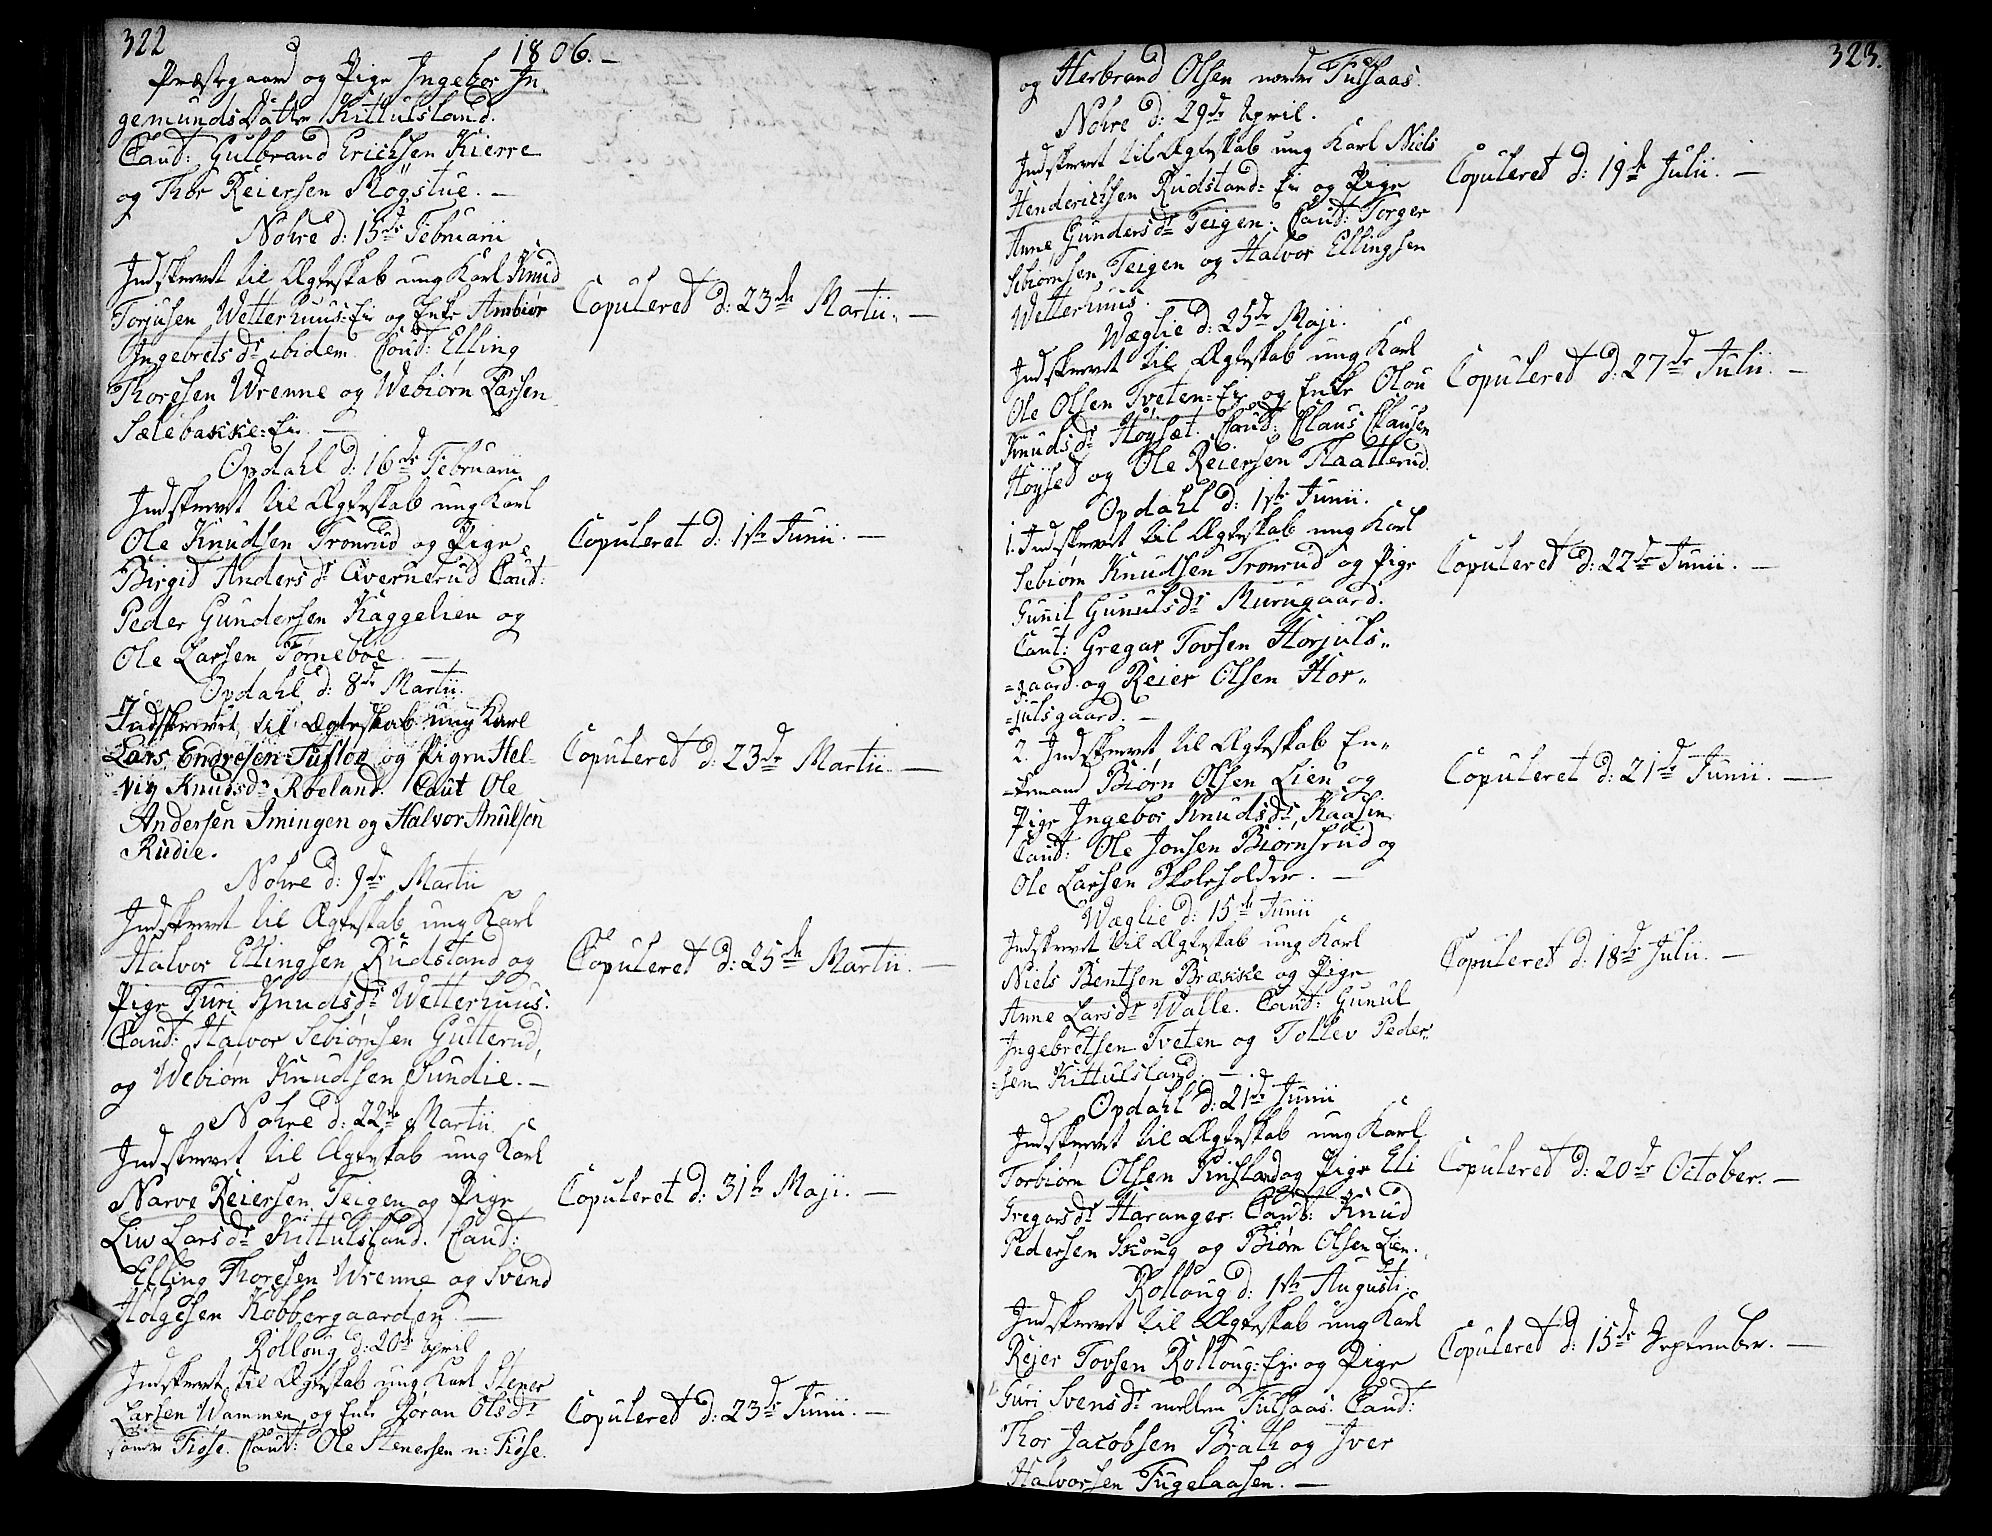 322
1806.-
Præstegaard og Pige Ingebor In,
gemunds Datter Kittulsland.
Caut: Gulbrand Erichsen Kierre
og Thor Reiersen Røgstue. -
Nohre d: 15de Februarii
Indskrevet til Ægteskab ung Karl Knud
Torjusen Wetterhuus=Eie og Enke Ambiør
Ingebrets dr ibidem. Caut: Elling
Thoresen Wrenne og Webiørn Larsen
Sælebakke=Eie. -
Copuleret d: 23de Martii. -
Opdahl d: 16de Februarii
Indskrevet til Ægteskab ung Karl
Ole Knudsen Tronrud og Pige
Birgid Anders dr Qvernerud Caut:
Peder Gundersen Kaggelien og
Ole Larsen Torneboe. -
Copuleret d: 1ste Junii. -
Opdahl d: 8de Martii.
Indskrevet til Ægteskab ung Karl
Lars Endresen Tufloe og Pigen Hel-
-vig Knudsdr Røeland. Caut Ole
Andersen Imingen og Halvor Anulson
Rudie.
Copuleret d: 23de Martii. -
Nohre d: 9de Martii
Indskrevet til Ægteskab ung Karl
Halvor Ellingsen Rudstand og
Pige Turi Knudsdr Wetterhuus.
Caut: Halvor Sebiørnsen Gulterud,
og Webiørn Knudsen Sundie. -
Copuleret d: 25de Martii. -
Nohre d: 22de Martii
Indskrevet til Ægteskab ung Karl
Narve Reiersen Teigen og Pige
Liw Larsdr Kittulsland. Caut:
Elling Thoresen Wrenne og Svend
Holgesen Kobbergaarden. -
Copuleret d: 31te Maji. -
Rolloug d: 20de April
Indskrevet til Ægteskab ung Karl Stener
Larsen Wammen og Enke Gøran Olsdr
søndre Fiøse. Caut: Ole Stenersen n: Fiøse.
Copuleret d: 23de Junii. -
323.
og Herbrand Olsen nordre Fulsaas.
Nohre d: 29de April.
Indskrevet til Ægteskab ung Karl Niels
Henderichsen Rudstand= Eie og Pige
Anne Gundersdr Teigen. Caut: Torger
Sebiørnsen Teigen og Halvor Ellingsen
Wetterhuus. -
Copuleret d: 19de Julii. -
Wæglie d: 25de Maji.
Indskrevet til Ægteskab ung Karl
Ole Olsen Tveten=Eie og Enke Olou
Knudsdr Høyset. Caut: Claus Clausen
Høysed og Ole Reiersen Flaatterud.
Copuleret d: 27de Julii. -
Opdahl d: 1ste Junii.
1. Indskrevet til Ægteskab ung Karl
Sebiørn Knudsen Tronrud og Pige
Gunil Gunulsdr Murugaard.
Caut: Gregar Tovsen Horjuls,,
=gaard og Reier Olsen Hor,,
=julsgaard. -
Copuleret d: 22de Junii. -
2. Indskrevet til Ægteskab En,,
=kemand Biørn Olsen Lien og
Pige Ingebor Knudsdr Kaasin.
Caut: Ole Jonsen Biørnsrud og
Ole Larsen Skoleholder. -
Copuleret d: 21de Junii. -
Wæglie d: 15de Junii
Indskrevet til Ægteskab ung Karl
Niels Bentsen Brække og Pige
Anne Larsdr Walle. Caut: Gunul
Ingebretsen Tveten og Tollev Peder,,
=sen Kittulsland. -
Copuleret d: 18de Julii. -
Opdahl d: 21de Junii
Indskrevet til Ægteskab ung Karl
Torbiørn Olsen Knisland og Pige Eli
Gregarsdr Haranger. Caut: Knud
Pedersen Skoug og Biørn Olsen Lien.
Copuleret d: 20de October. -
Rolloug d: 1ste Augusti.
Indskrevet til Ægteskab ung Karl
Rejer Tovsen Rolloug=Eje og Pige
Guri Svensdr mellem Fulsaas. Caut:
Thor Jacobsen Brath og Iver
Halvorsen Fugelaasen. -
Copuleret d: 15de September. -